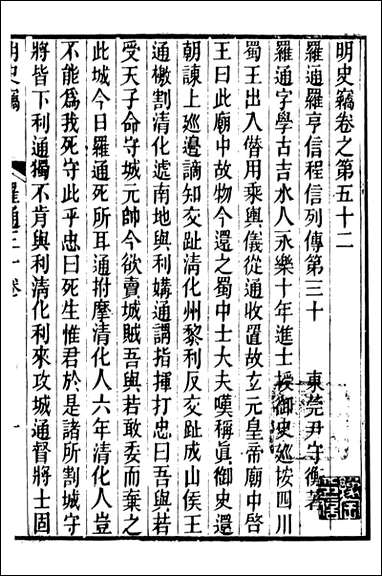 明史竊卷之第五十二
羅通羅亨信程信列傳第三十
東莞尹守衡著
羅通字學古吉水人永樂十年進士授御史巡按四川
蜀王出入僣用乘輿儀從通收置故玄元皇帝廟中啓
王曰此廟中故物今還之蜀中士大夫嘆稱眞御史還
朝諫上巡邊謫知交趾清化州黎利反交趾成山侯王
通檄割清化𨒪南地與利媾通謂指揮打忠曰吾與若
受天子命守城元帥今欲賣城賊吾與若敢委而棄之
此城今日羅通死所耳通拊摩清化人六年清化人豈
不能爲我死守此乎忠曰死生惟君於是諸所割城守
將皆下利通獨不肯與利清化利來攻城通督將士固
明史竊
羅通三十卷
一